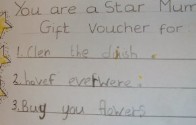 You are a Star Mum
Gift Voucher for
1. Clen the dish.
2. hovef evrwere.
3. Buy you flowers